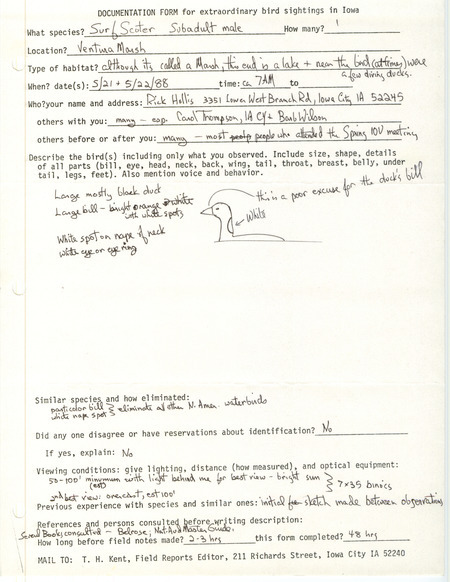 DOCUMENTATION FORM for extraordinary bird sightings in Iowa
What species? Surf Scoter Subadult male How many? 1
Location? Ventura Marsh
Type of habitat? although its called a Marsh, this end is a lake + near the bird (at times) were
a few diving ducks.
When? date(s): 5/21 + 5/22/88 time: ca 7AM to
Who? your name and address: Rick Hollis 3351 Lower West Branch Rd, Iowa City IA 52245
others with you: many - esp. Carol Thompson, IA Cy + Barb Wilson
others before or after you: many - most people who attended the Spring IOU meeting
Describe the bird(s) including only what you observed. Include size, shape, details
of all parts (bill, eye, head, neck, back, wing, tail, throat, breast, belly, under
tail, legs, feet). Also mention voice and behavior.
Large mostly black duck
Large bill - bright orange + white
with white spots
White spot on nape of neck
white eye or eye ring
this is a poor excuse for the duck's bill
White
Similar species and how eliminated:
particolor bill
white nape spot } eliminate all other N. Amer. waterbirds
Did any one disagree or have reservations about identification? No
If yes, explain: No
Viewing conditions: give lighting, distance (how measured), and optical equipment:
50-100' minimum with light behind me for best view - bright sun
(est)
} 7x35 binics
2nd best view: overcast, est 100'
Previous experience with species and similar ones: initial sketch made between observations
References and persons consulted before writing description:
Several Books consulted - Bellrose, Nat Aud Master Guide,
How long before field notes made? 2-3 hrs this form completed? 48 hrs
MAIL TO: T. H. Kent, Field Reports Editor, 211 Richards Street, Iowa City IA 52240